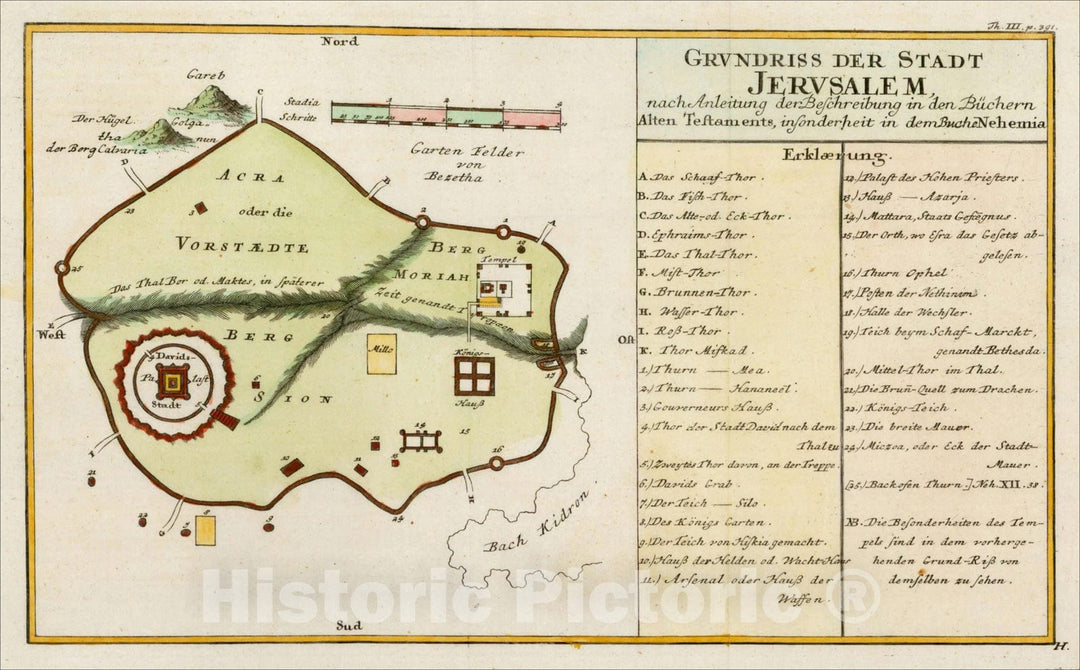 Th. III. p. 391.
Nord
Gareb
Der Hügel Golga-
tha nun
der Berg Calvaria
Stadia 1 2 3 4
Schritte
Garten Felder
von
Bezetha.
ACRA
oder die
VORSTÆDTE
BERG
MORIAH
Tempel
Das Thal Ber od. Maktes, in späterer
Zeit genandt Tyropoen
West
Ost
BERG
SION
Davids-
Palast
Stadt
Millo
Königs-
Hauß
Bach Kidron
Sud
H.
GRVNDRISS DER STADT
JERVSALEM,
nach Anleitung der Beschreibung in den Büchern
Alten Testaments, insonderheit in dem Buche Nehemia
Erklærung.
A. Das Schaaf-Thor.
B. Das Fish-Thor.
C. Das Alte-od. Eck-Thor.
D. Ephraims-Thor.
E. Das Thal-Thor.
F. Mist-Thor
G. Brunnen-Thor.
H. Wasser-Thor.
I. Roß-Thor.
K. Thor Mifkad.
1.) Thurn — Mea.
2.) Thurn — Hananeel.
3.) Gouverneurs Hauß.
4.) Thor der Stadt David nach dem
Thal zu
5.) Zweytes Thor davon, an der Treppe.
6.) Davids Grab.
7.) Der Teich — Silo.
8.) Des Königs Garten.
9.) Der Teich von Hiskia gemacht.
10.) Hauß der Helden od. Wacht-Haus
11.) Arsenal oder Hauß der
Waffen.
12.) Palast des Hohen Priesters.
13.) Hauß — Azarja.
14.) Mattara, Staats Gefägnus.
15.) Der Orth, wo Esra das Gesetz ab-
gelesen.
16.) Thurn Ophel.
17.) Posten der Nethinim.
18.) Halle der Wechsler.
19.) Teich beym Schaf-Marckt,
genandt Bethesda.
20.) Mittel-Thor im Thal.
21.) Die Bruñ-Quell zum Drachen.
22.) Königs-Teich.
23.) Die breite Mauer.
24.) Miczoa, oder Eck der Stadt-
Mauer.
[25.) Backofen Thurn.] Neh. XII. 38.
NB. Die Besonderheiten des Tem-
pels sind in dem vorherge-
henden Grund-Riß von
demselben zu sehen.
Historic Pictoric ®